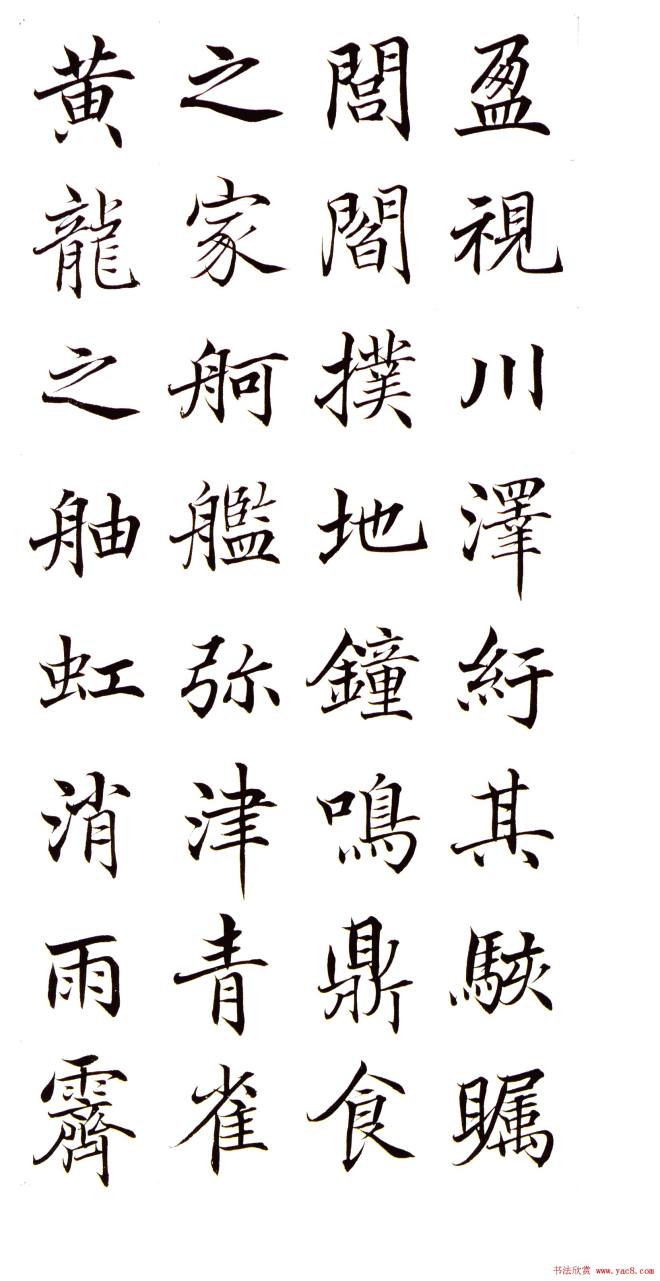 盈視川澤紆其駭瞩
閭閻撲地鐘鳴鼎食
之家舸艦弥津青雀
黄龍之舳虹消雨霽
书法欣赏 www.yac8.com